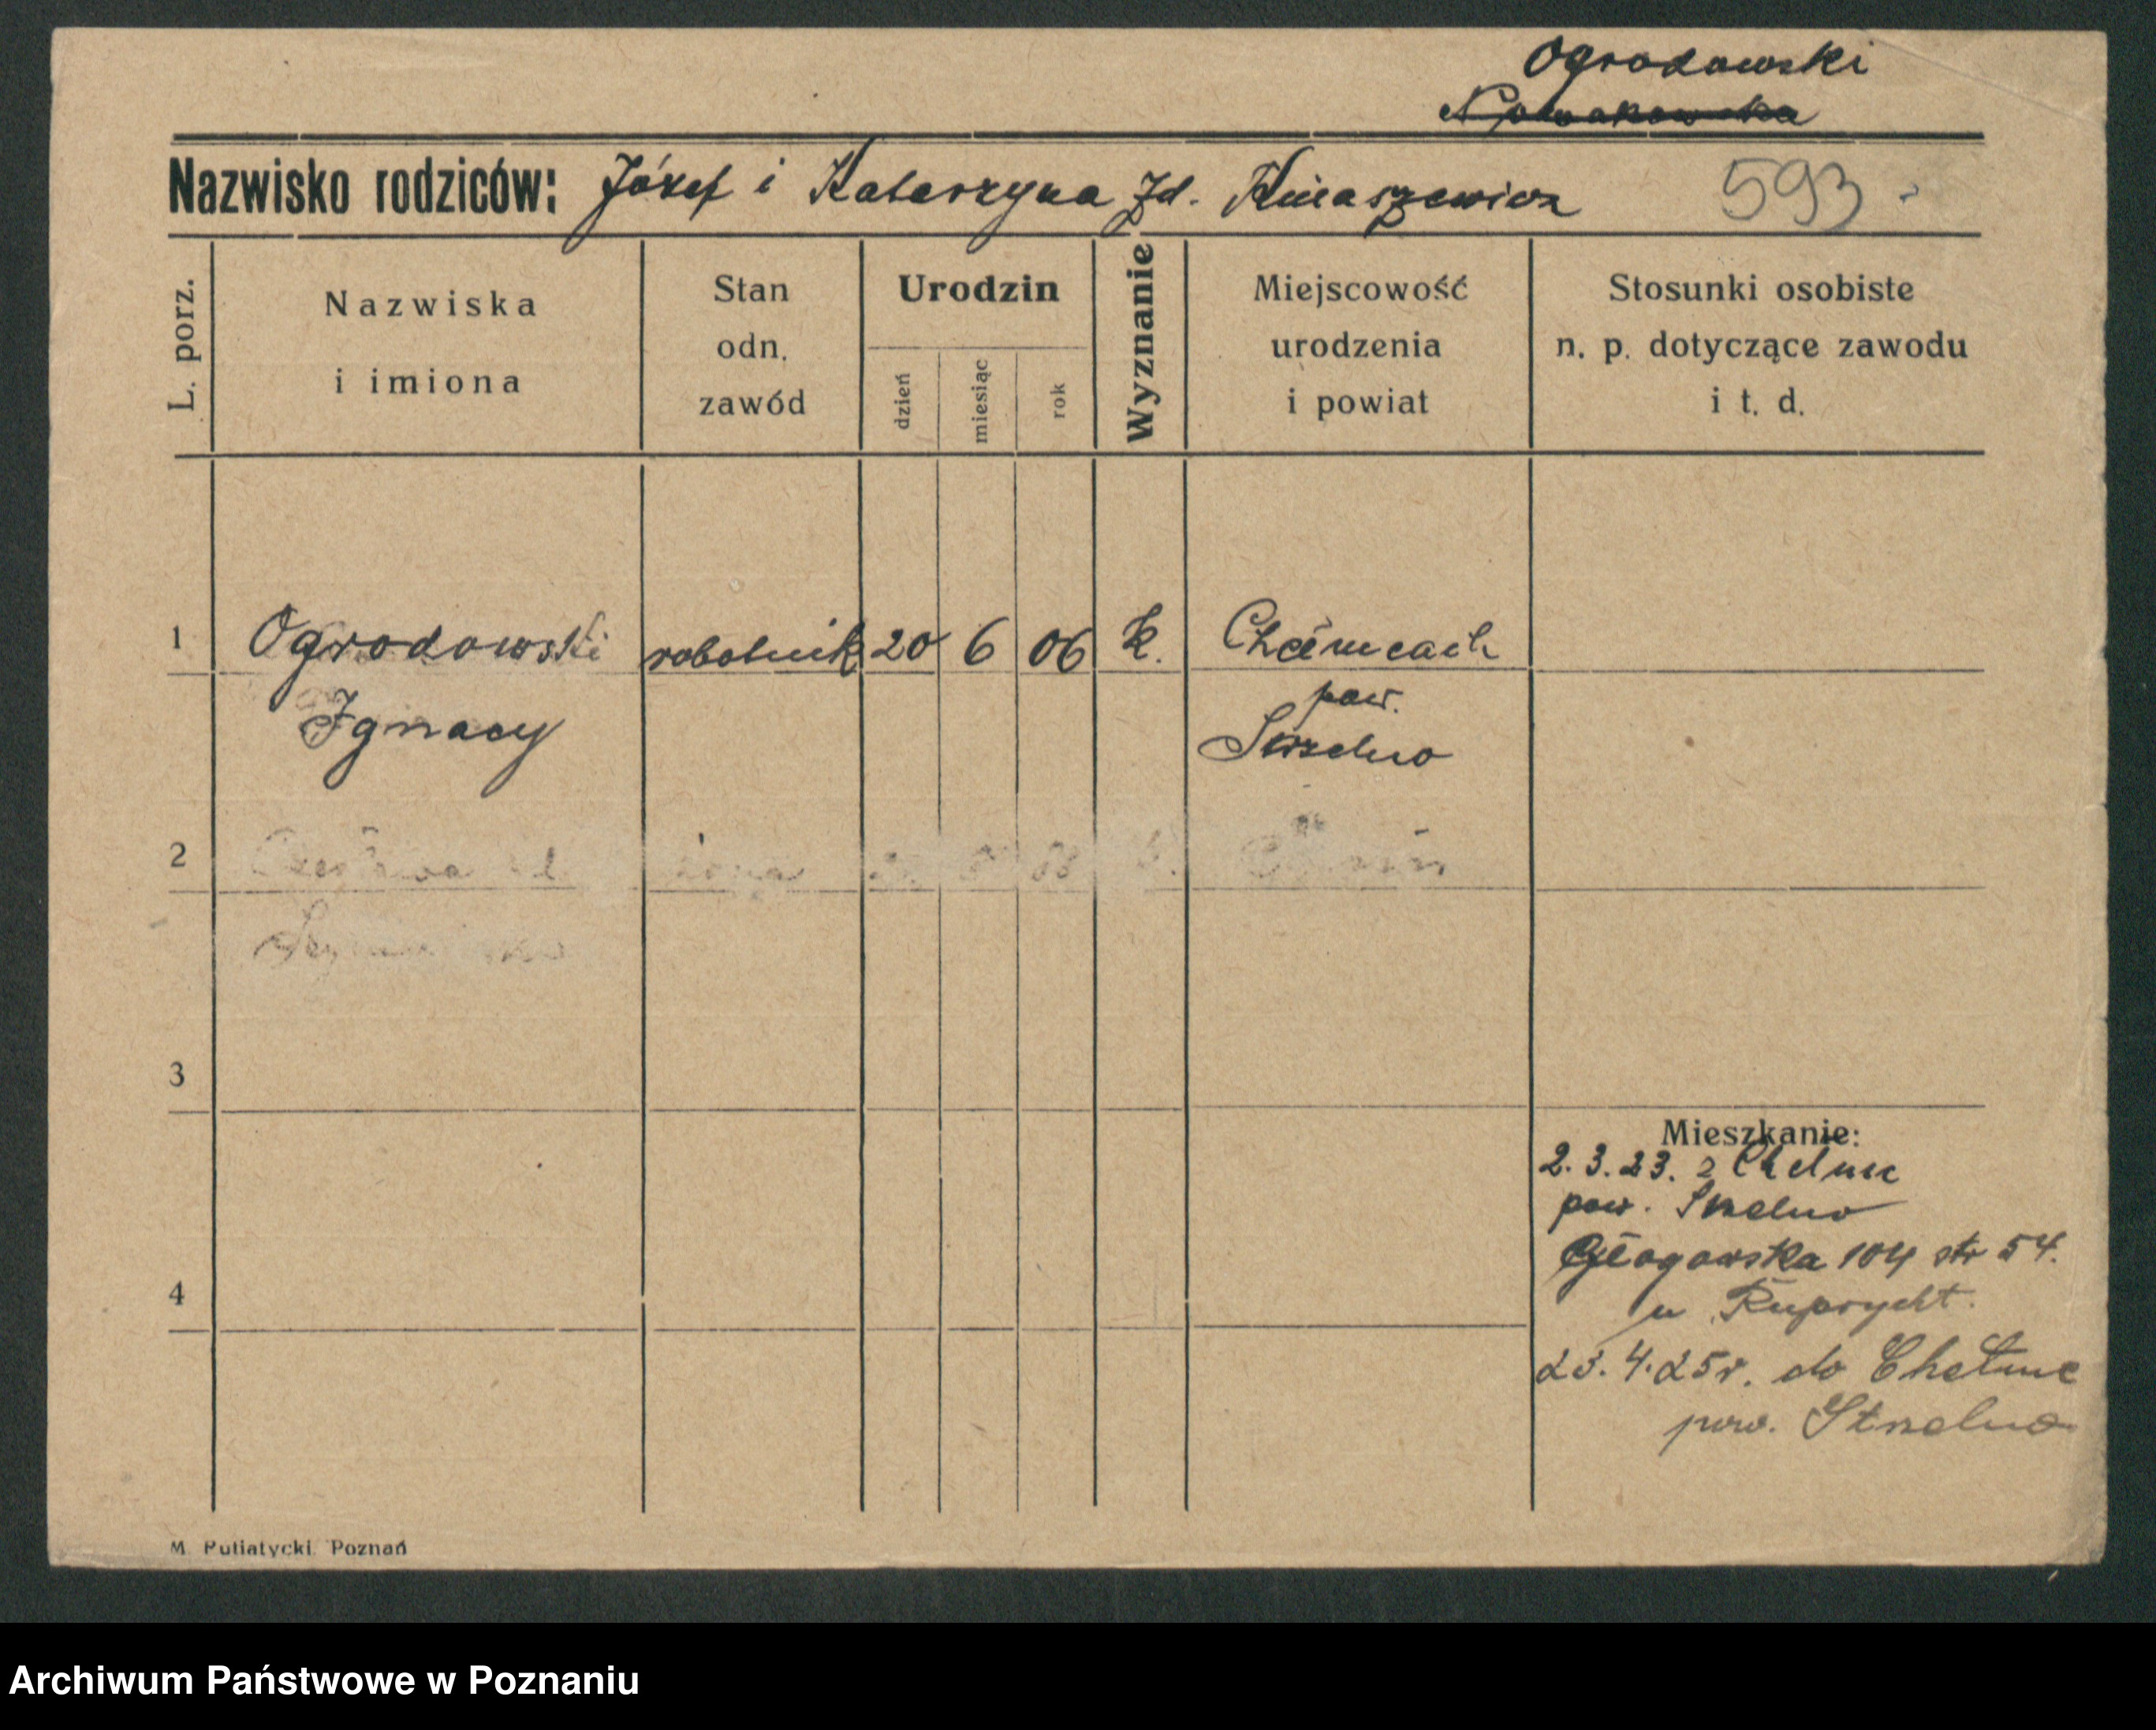 Ogrodowski
Nowakowska
Nazwisko rodziców: Józef i Katarzyna zd. 593
L. porz.
Nazwiska
i imiona
Stan
odn.
zawód
Urodzin
dzień
miesiąc
rok
Wyznanie
Miejscowość
urodzenia
i powiat
Stosunki osobiste
n. p. dotyczące zawodu
i t. d.
1 Ogrodowski robotnik 20 6 06 k.
Ignacy
pow.
Strzelno
2
3
4
Mieszkanie:
2. 3. 23. z Chełmc
pow. Strzelno
Głogowska 104 str 54.
u Ruprycht.
23. 4. 25 r. do Chełmc
pow. Strzelno
M. Putiatycki. Poznań
Archiwum Państwowe w Poznaniu